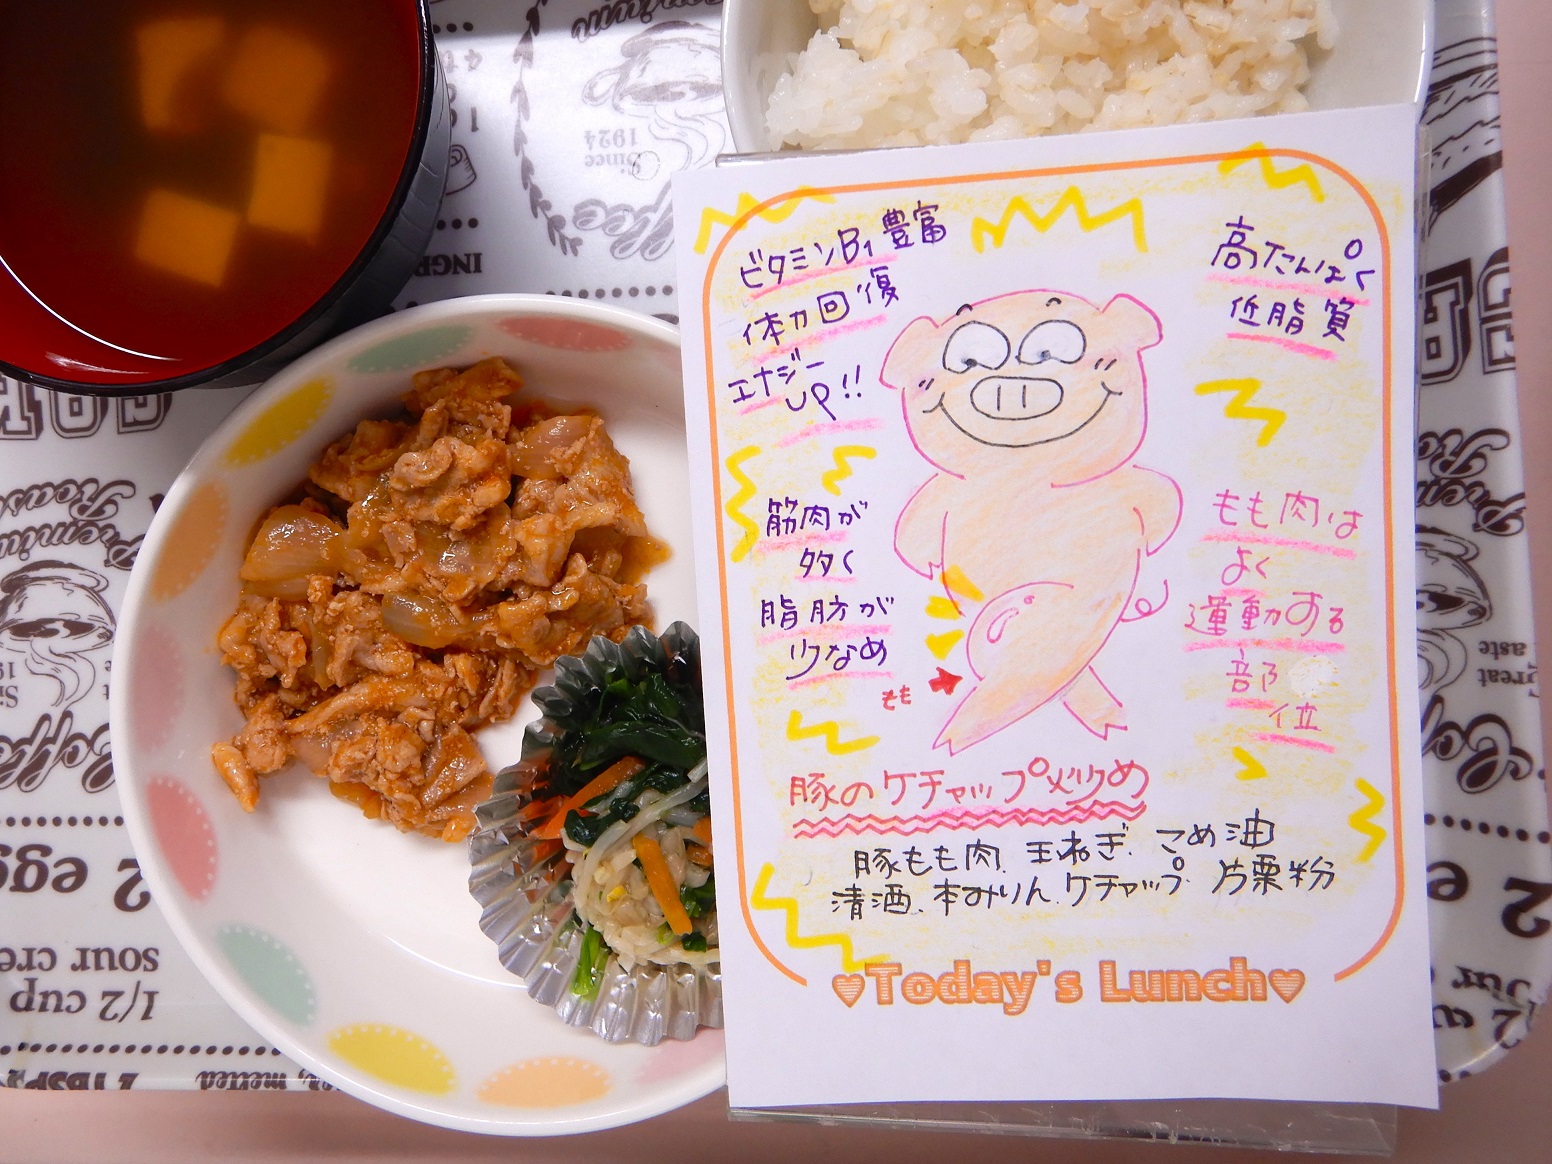 ビタミンB1豊富
体力回復
エナジー
UP!!
高たんぱく
低脂質
筋肉が
多く
脂肪が
少なめ
もも
もも肉は
よく
運動する
部位
豚のケチャップ炒め
豚もも肉、玉ねぎ、こめ油
清酒、本みりん、ケチャップ 片栗粉
♥Today's Lunch♥
Since
1924
Coffee
2 egg
1/2 cup
sour cre
Premium
Coffee
melted